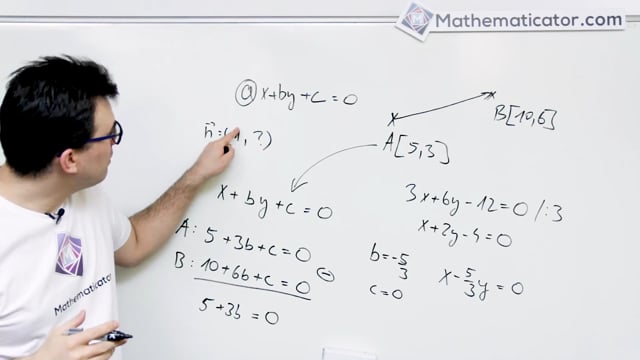 Mathematicator.com
ax+by+c=0
B[10,6]
n⃗=(1,?)
A[5,3]
x+by+c=0
3x+6y-12=0 /:3
x+2y-4=0
A: 5+3b+c=0
B: 10+6b+c=0 ⊖
5+3b=0
b=-5/3
c=0
x-5/3y=0
Mathematicator